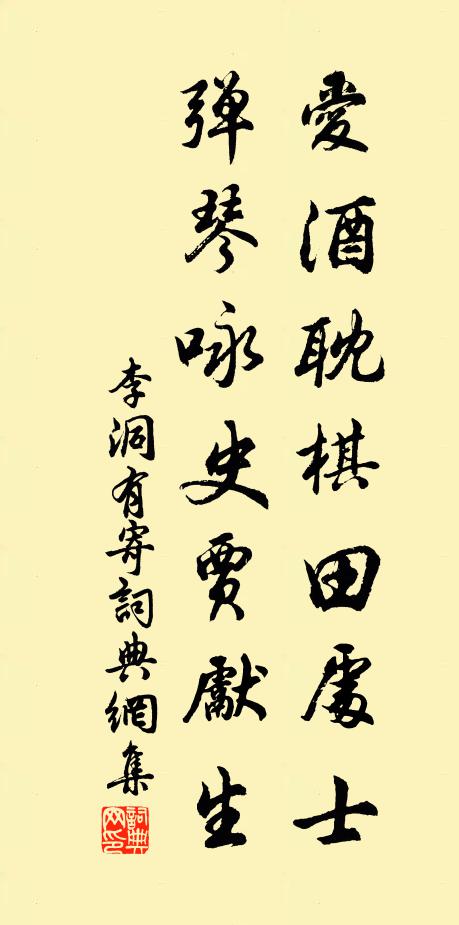 愛酒耽棋田處士
弹琴咏史賈獻生
李洞有寄詞典網集
詞典网印